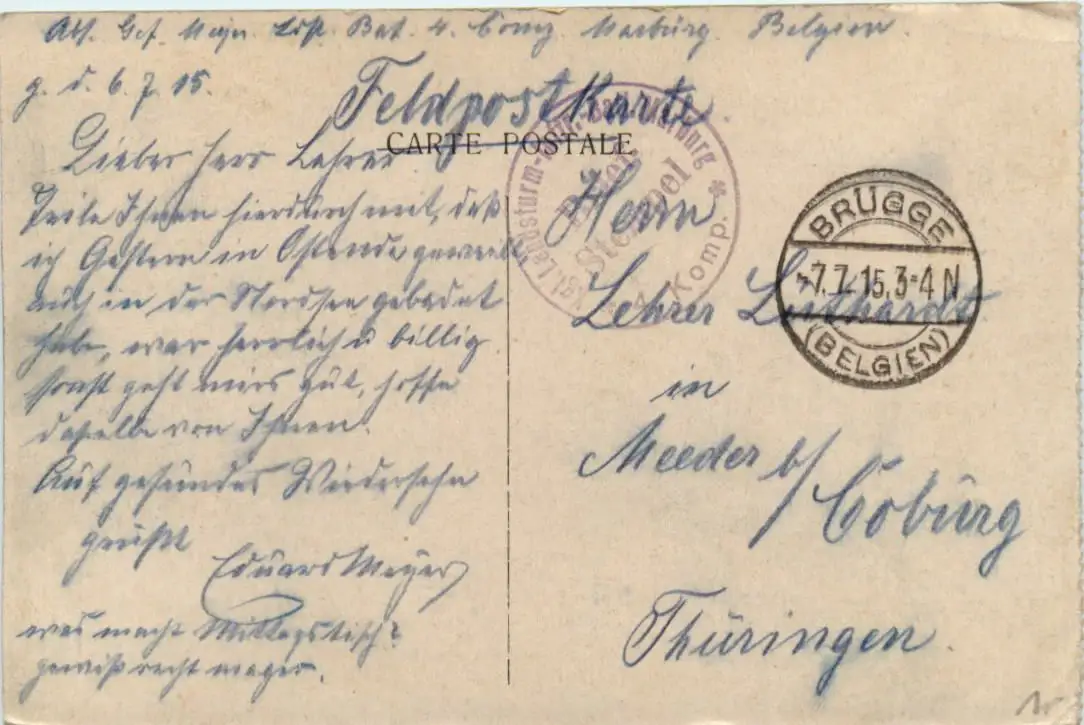 Abs. Gef. Meyer. Ldst. Bat. 4. Comp. Marburg. Belgien.
g. d. 6. 7. 15.
Feldpostkarte
CARTE POSTALE
Lieber Herr Lehrer
Teile Ihnen hierdurch mit, daß
ich Gestern in Ostende geweilt
auch in der Nordsee gebadet
habe, war herrlich u billig.
sonst geht mirs gut, hoffe
daselbe von Ihnen.
Auf gesundes Wiedersehn
grüßt
Eduard Meyer
was macht Mittagstisch?
gewiß recht mager.
Kgl. Landsturm-Marburg * 4. Komp.
Brief
Stempel
Herrn
Lehrer Luthardt
in
Meeder b/
Coburg
Thüringen.
BRÜGGE
7.7.15.3-4 N
(BELGIEN)